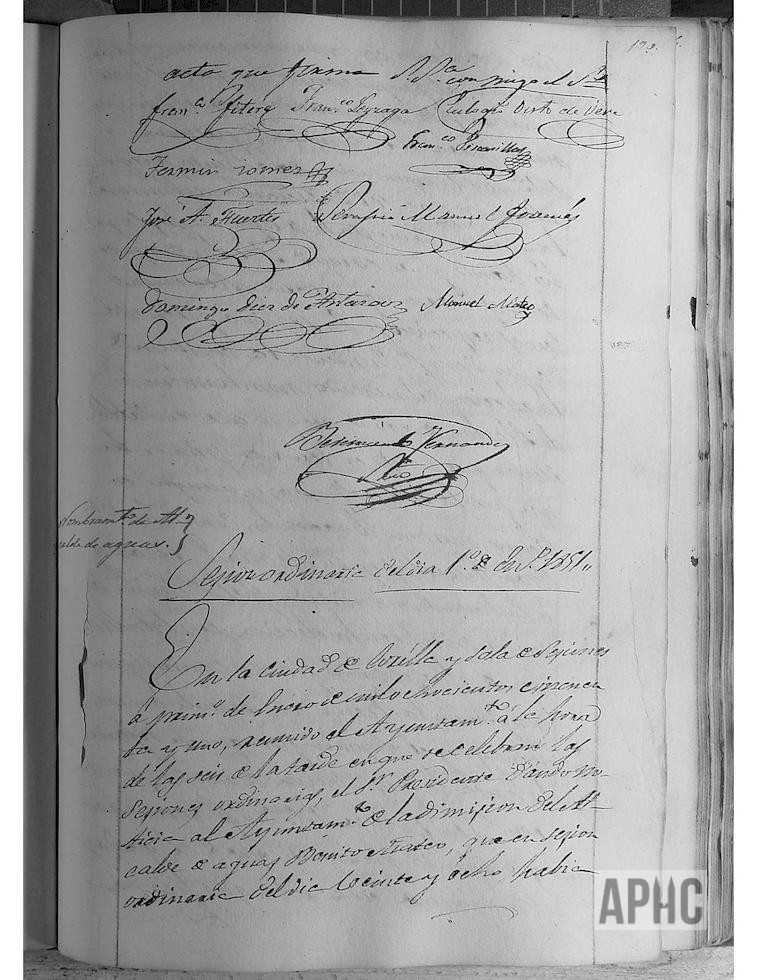 acta que firma S.S.ª con migo el S.rio
Fran.co Pitera Fran.co Lizaga
Fran.co
Fermin Gomez
José A. Fuertes Manuel Gimenez
Domingo Diez de Manuel Mateo
Bedernundo Fernandez
Srio
Nombram.to de Al-
calde de aguas.
Sesion ordinaria del dia 1.º de En.º 1851,,
En la ciudad de Corella y sala de Sesiones
á prim.º de Enero de mil ochocientos cincuen-
ta y uno, reunido el Ayuntam.to á la hora
de las seis de la tarde en que se celebran las
sesiones ordinarias, el S.r Presidente dando no-
ticia al Ayuntam.to de la dimision del Al-
calde de aguas Benito Mateo, que en sesion
ordinaria del dia veinte y ocho, habia
APHC